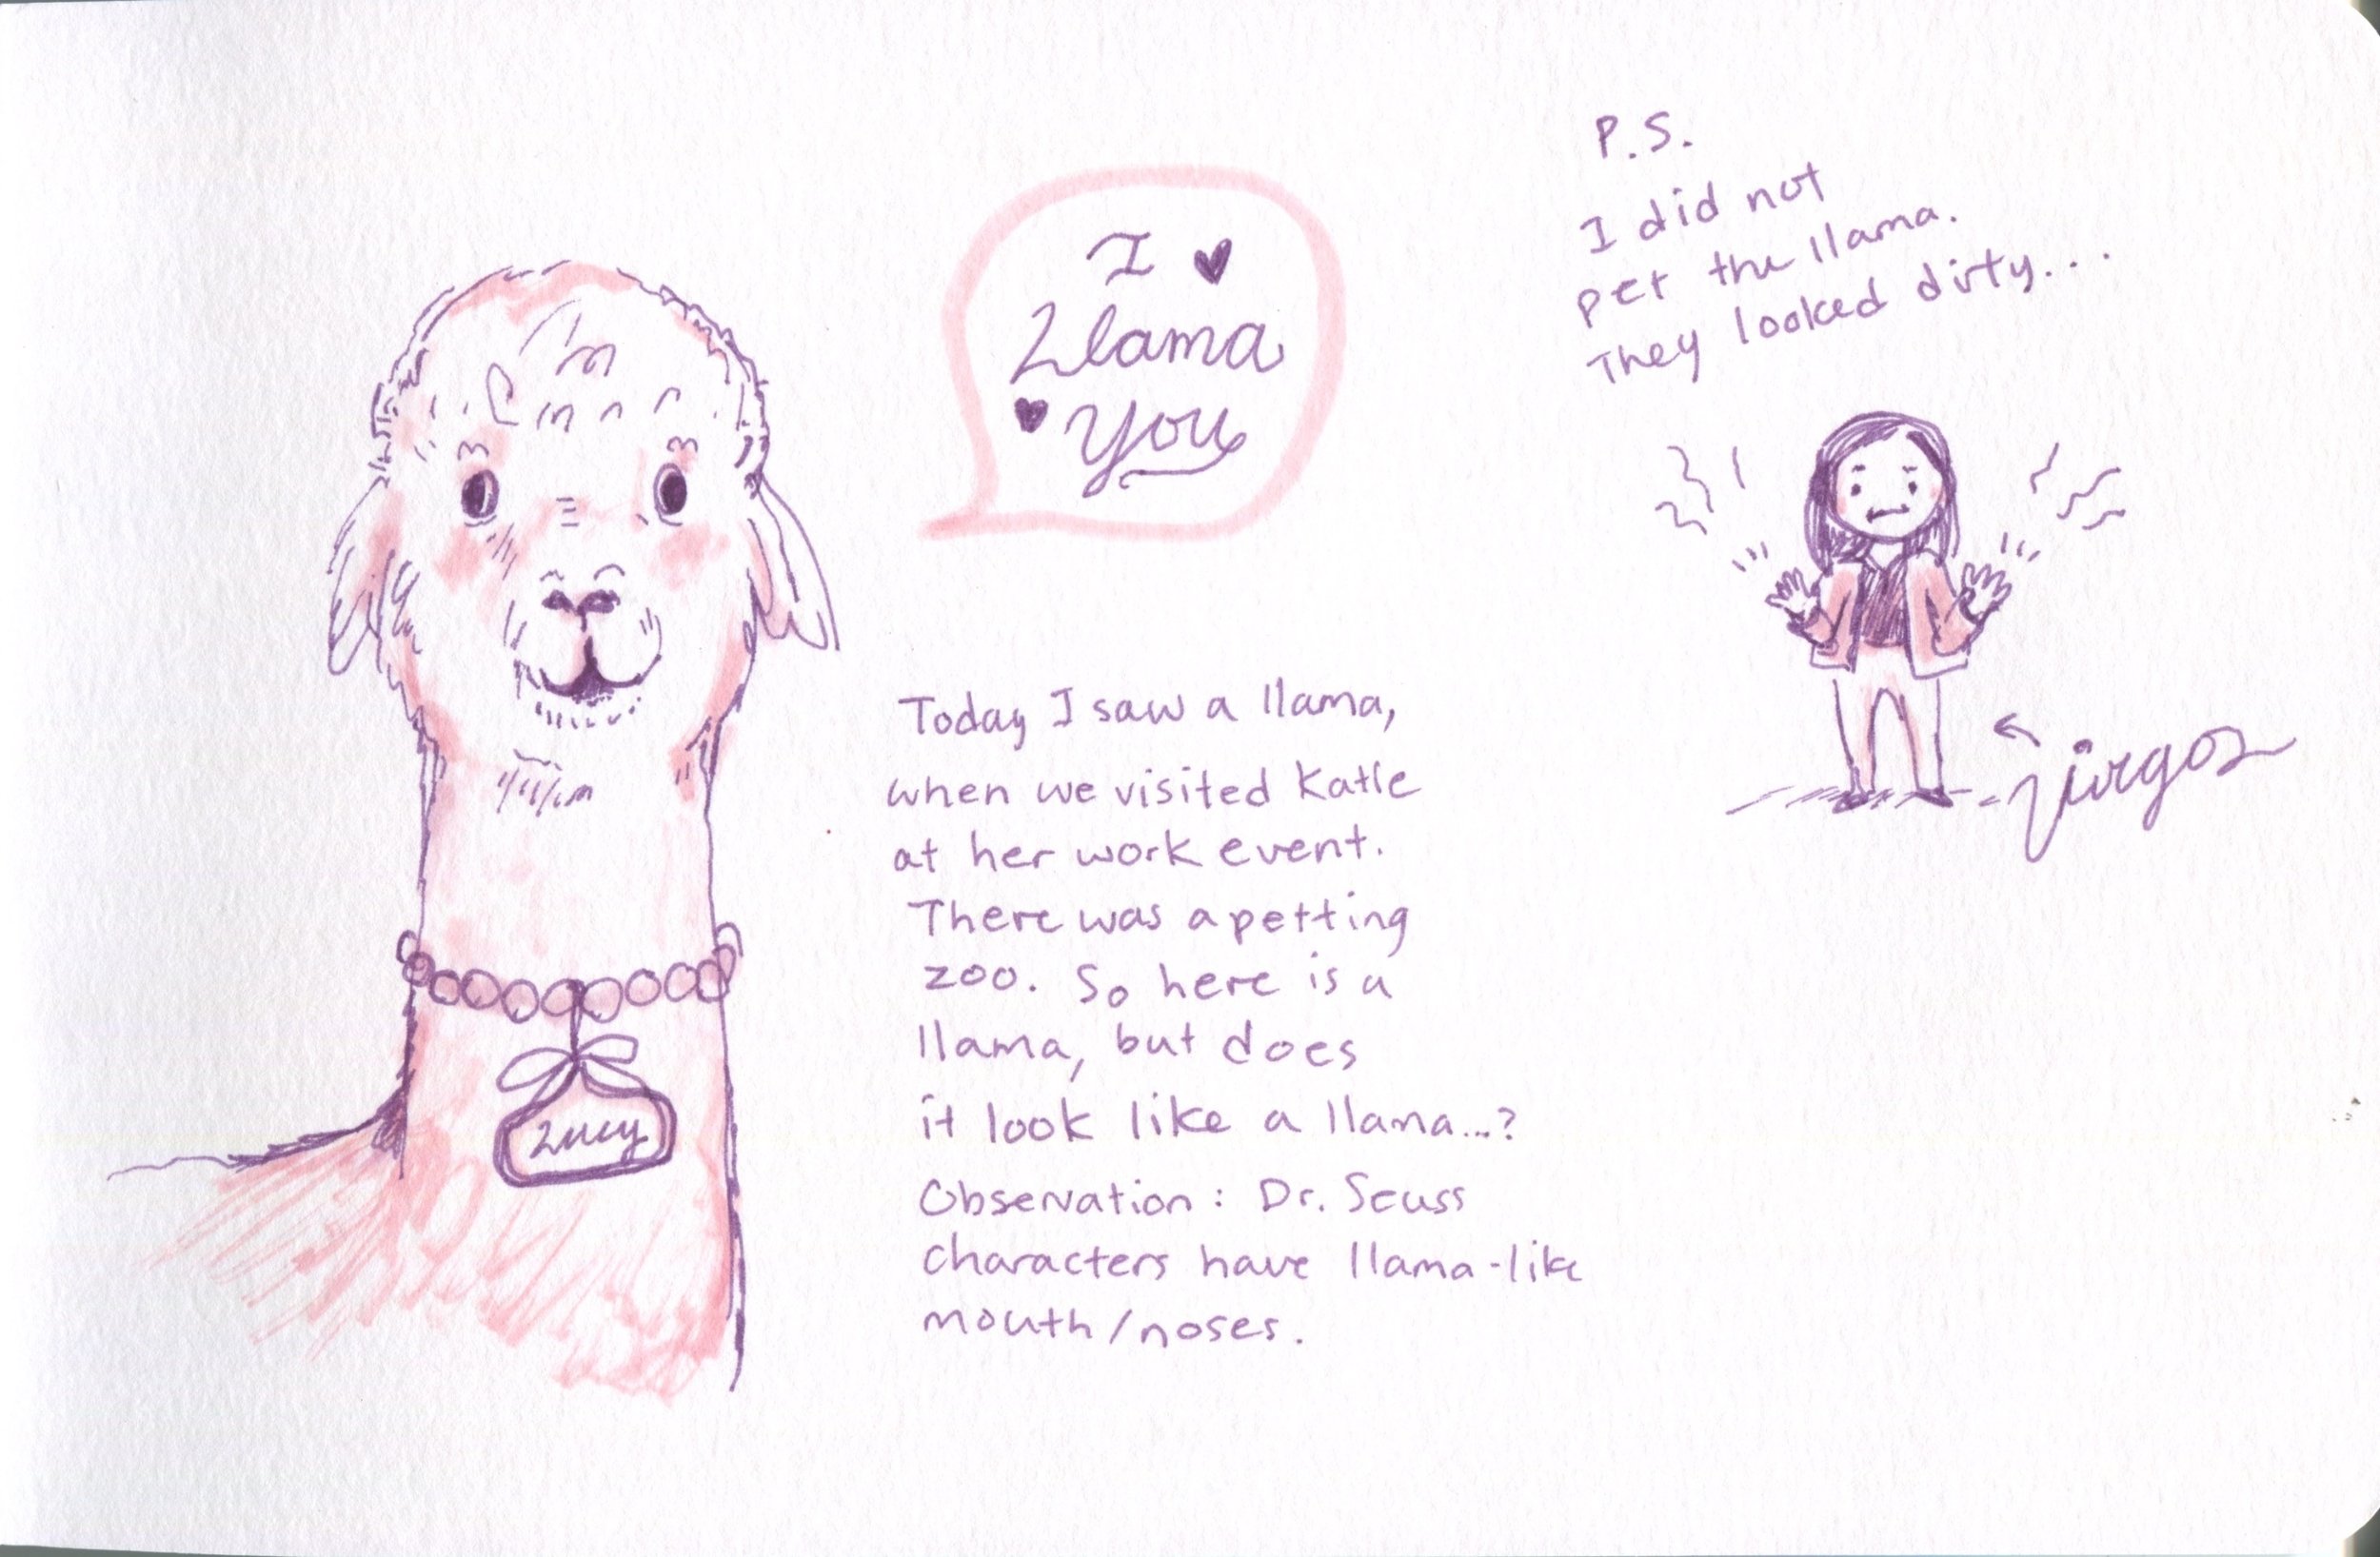 I
Llama
You
Lucy
Today I saw a llama,
when we visited Katie
at her work event.
There was a petting
zoo. So here is a
llama, but does
it look like a llama...?
Observation: Dr. Seuss
characters have llama-like
mouth/noses.
P.S.
I did not
pet the llama.
They looked dirty...
Virgos